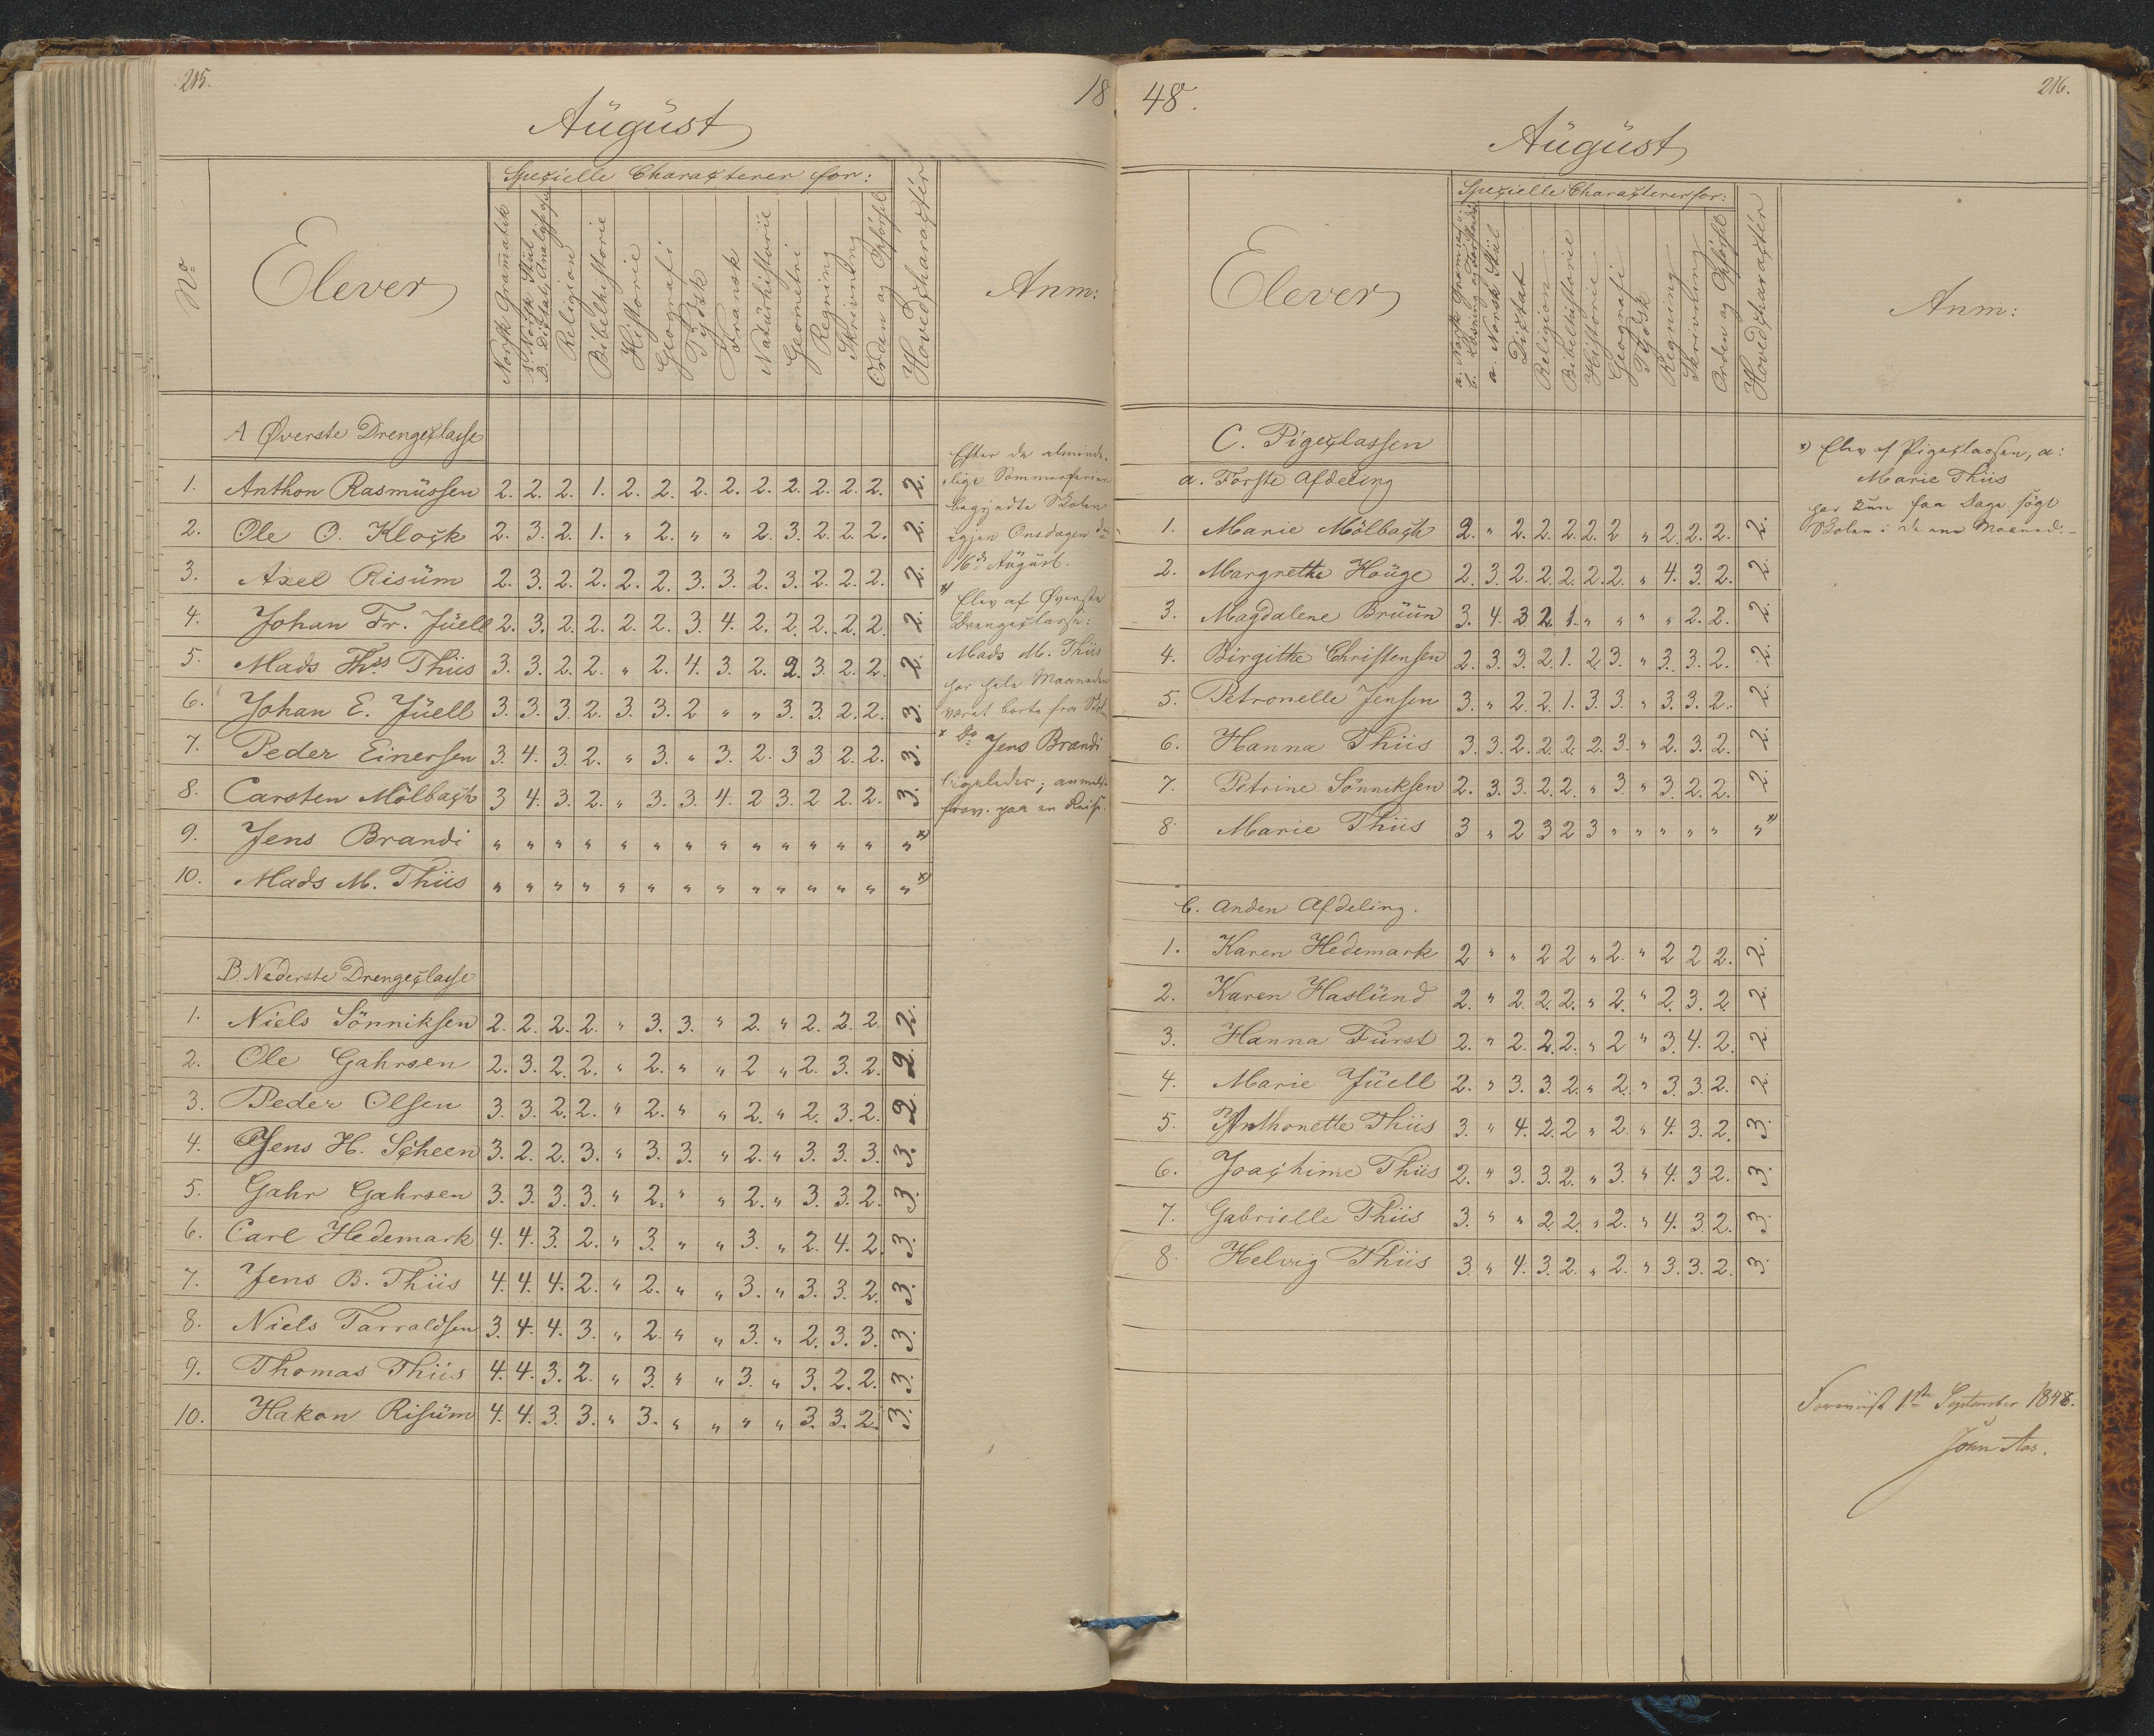 215.
18
August
Speçielle Charaçterer for:
No
Elever
Norsk Gram̅atik
a. Norsk Stiil
B. Diktat, Analyse
Religion
Bibelhistorie
Historie
Geografi
Tydsk
Fransk
Naturhistorie
Geometri
Regning
Skrivning
Orden og Opførsel
Hovedçharaçtér
Anm:
A Øverste Drengeçlasse
1. Anthon Rasmüssen 2. 2. 2. 1. 2. 2. 2. 2. 2. 2. 2. 2. 2. 2.
2. Ole O. Kloçk 2. 3. 2. 1. " 2. " " 2. 3. 2. 2. 2. 2.
3. Axel Risüm 2. 3. 2. 2. 2. 2. 3. 3. 2. 3. 2. 2. 2. 2.
4. Johan Fr. Jüell 2. 3. 2. 2. 2. 2. 3. 4. 2. 2. 2. 2. 2. 2.
5. Mads Ths Thiis 3. 3. 2. 2. " 2. 4. 3. 2. 2. 3. 2. 2. 2.
6. Johan E. Jüell 3. 3. 3. 2. 3. 3. 2 " " 3. 3. 2. 2. 3.
7. Peder Einersen 3. 4. 3. 2. " 3. " 3. 2. 3 3 2. 2. 3.
8. Carsten Mölbaçh 3 4. 3. 2. " 3. 3. 4. 2 3. 2 2. 2. 3.
9. Jens Brandi " " " " " " " " " " " " " " *)
10. Mads M. Thiis " " " " " " " " " " " " " " *)
B. Nederste Drengeçlasse
1. Niels Sönniksen 2. 2. 2. 2. " 3. 3. " 2. " 2. 2. 2. 2.
2. Ole Gahrsen 2. 3. 2. 2. " 2. " " 2 " 2. 3. 2. 2.
3. Peder Olsen 3. 3. 2. 2. " 2. " " 2. " 2. 3. 2. 2.
4. Jens H. Sçheen 3. 2. 2. 3. " 3. 3. " 2. " 3. 3. 3. 3.
5. Gahr Gahrsen 3. 3. 3. 3. " 2. " " 2. " 3. 3. 2. 3.
6. Carl Hedemark 4. 4. 3. 2. " 3. " " 3. " 2. 4. 2. 3.
7. Jens B. Thiis 4. 4. 4. 2. " 2. " " 3. " 3. 3. 2. 3.
8. Niels Tarraldsen 3. 4. 4. 3. " 2. " " 3. " 2. 3. 3. 3.
9. Thomas Thiis 4. 4. 3. 2. " 3. " " 3. " 3. 2. 2. 3.
10. Hakon Risüm 4. 4. 3. 3. " 3. " " " " 3. 3. 2. 3.
Efter de alminde-
lige Sommerferier
begyndte Skolen
igjen Onsdagen
16de August.
*) Elev af Øverste
Drengeçlasse:
Mads M. Thiis
har hele Maaneden
været borte fra
* Do Jens Brandi
ligeledes;
paa en Reise.
48.
216.
August
Speçielle Charaçterer for:
Elever
a. Norsk
b. Læsning og Forstand
a. Norsk Stiil
Diçtat
Religion
Bibelhistorie
Historie
Geografi
Tydsk
Regning
Skrivning
Orden og Opførsel
Hovedçharaçtér
Anm:
C. Pigeçlassen
a. Første Afdeling
1. Marie Mölbaçh 2. " 2. 2. 2. 2. 2 " 2. 2. 2. 2.
2. Margrethe Houge 2. 3. 2. 2. 2. 2. 2. " 4. 3. 2. 2.
3. Magdalene Brüün 3. 4. 3 2. 1. " " " " 2. 2. 2.
4. Birgitha Christensen 2. 3. 3. 2. 1. 2. 3. " 3. 3. 2. 2.
5. Petronelle Jensen 3. " 2. 2. 1. 3. 3. " 3. 3. 2. 2.
6. Hanna Thiis 3. 3. 2. 2. 2. 2. 3. " 2. 3. 2. 2.
7. Petrine Sönniksen 2. 3. 3. 2. 2. " 3. " 3. 2. 2. 2.
8. Marie Thiis 3 " 2 3 2 3 " " " " " " *)
b. Anden Afdeling.
1. Karen Hedemark 2 " " 2 2 " 2. " 2 2 2. 2.
2. Karen Haslünd 2. " 2. 2. 2. " 2. " 2. 3. 2. 2.
3. Hanna Fürst 2. " 2. 2. 2. " 2 " 3. 4. 2. 2.
4. Marie Jüell 2. " 3. 3. 2. " 2. " 3. 3. 2. 2.
5. Anthonette Thiis 3. " 4. 2. 2 " 2. " 4. 3. 2. 3.
6. Joaçhime Thiis 2. " 3. 3. 2. " 3. " 4. 3 2. 3.
7. Gabrielle Thiis 3. " " 2. 2. " 2. " 4. 3. 2. 3.
8. Helvig Thiis 3. " 4. 3. 2. " 2. " 3. 3. 2. 3.
*) Elev af Pigeçlassen, a:
Marie Thiis
har kun faa Dage søgt
Skolen i denne Maaned.
1ste September 1848.
John Aas.